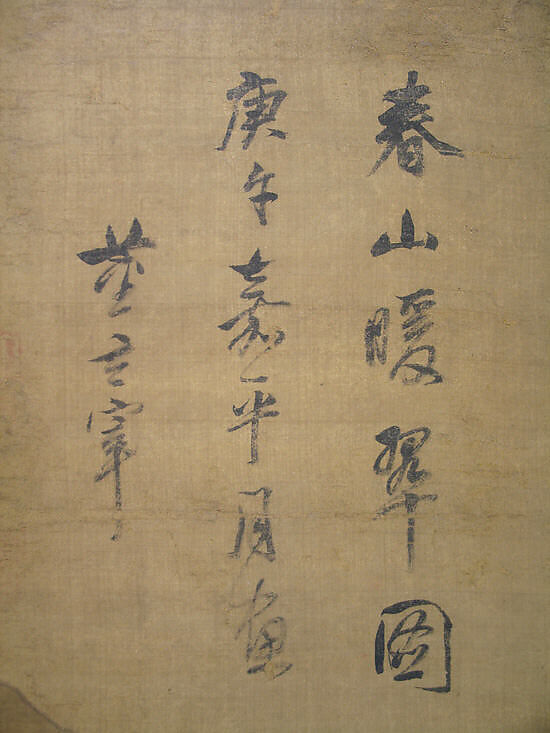 春山暖翠圖
庚午嘉平月畫
董玄宰